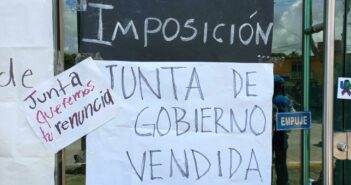 IMPOSICIÓN
de
Junta
queremos
tu renuncia
JUNTA DE
GOBIERNO
VENDIDA
EMPUJE